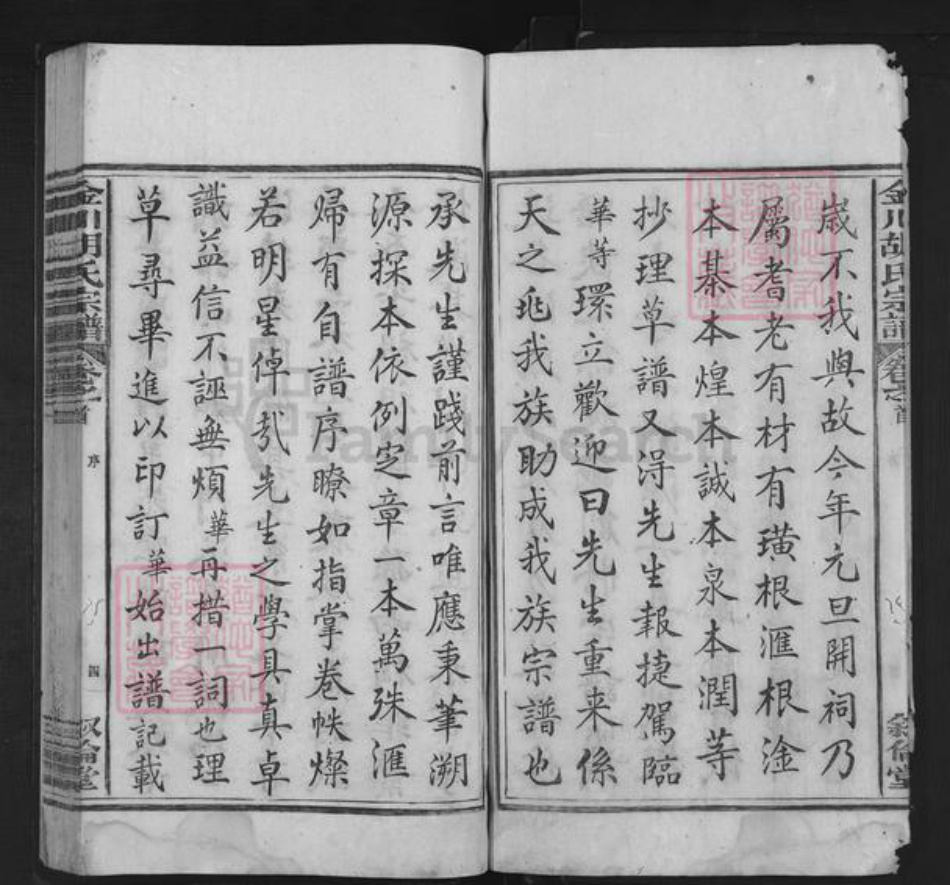 金川胡氏宗譜
卷之首
敘倫堂
歲不我與故今年元旦開祠乃
屬耆老有材有璜根滙根淦
本棊本煌本誠本泉本潤等
抄理草譜又淂先生報捷駕臨
華等環立歡迎曰先生重来係
天之兆我族助成我族宗譜也
承先生謹踐前言唯應秉筆溯
源探本依例定章一本萬殊滙
歸有自譜序瞭如指掌卷帙燦
若明星倬哉先生之學具真卓
識益信不誣無煩華再措一詞也理
草尋畢進以印訂華始出譜記載
金川胡氏宗譜
卷之首
序
四
敘倫堂
FamilySearch